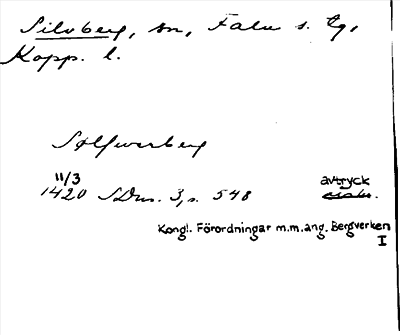 Silvberg, sn, Falu s. tg,
Kopp. l.
Sølfwerberg
11/3
1420 SDns. 3, s. 548 avtryck
Kongl. Förordningar m.m.ang. Bergverken
I